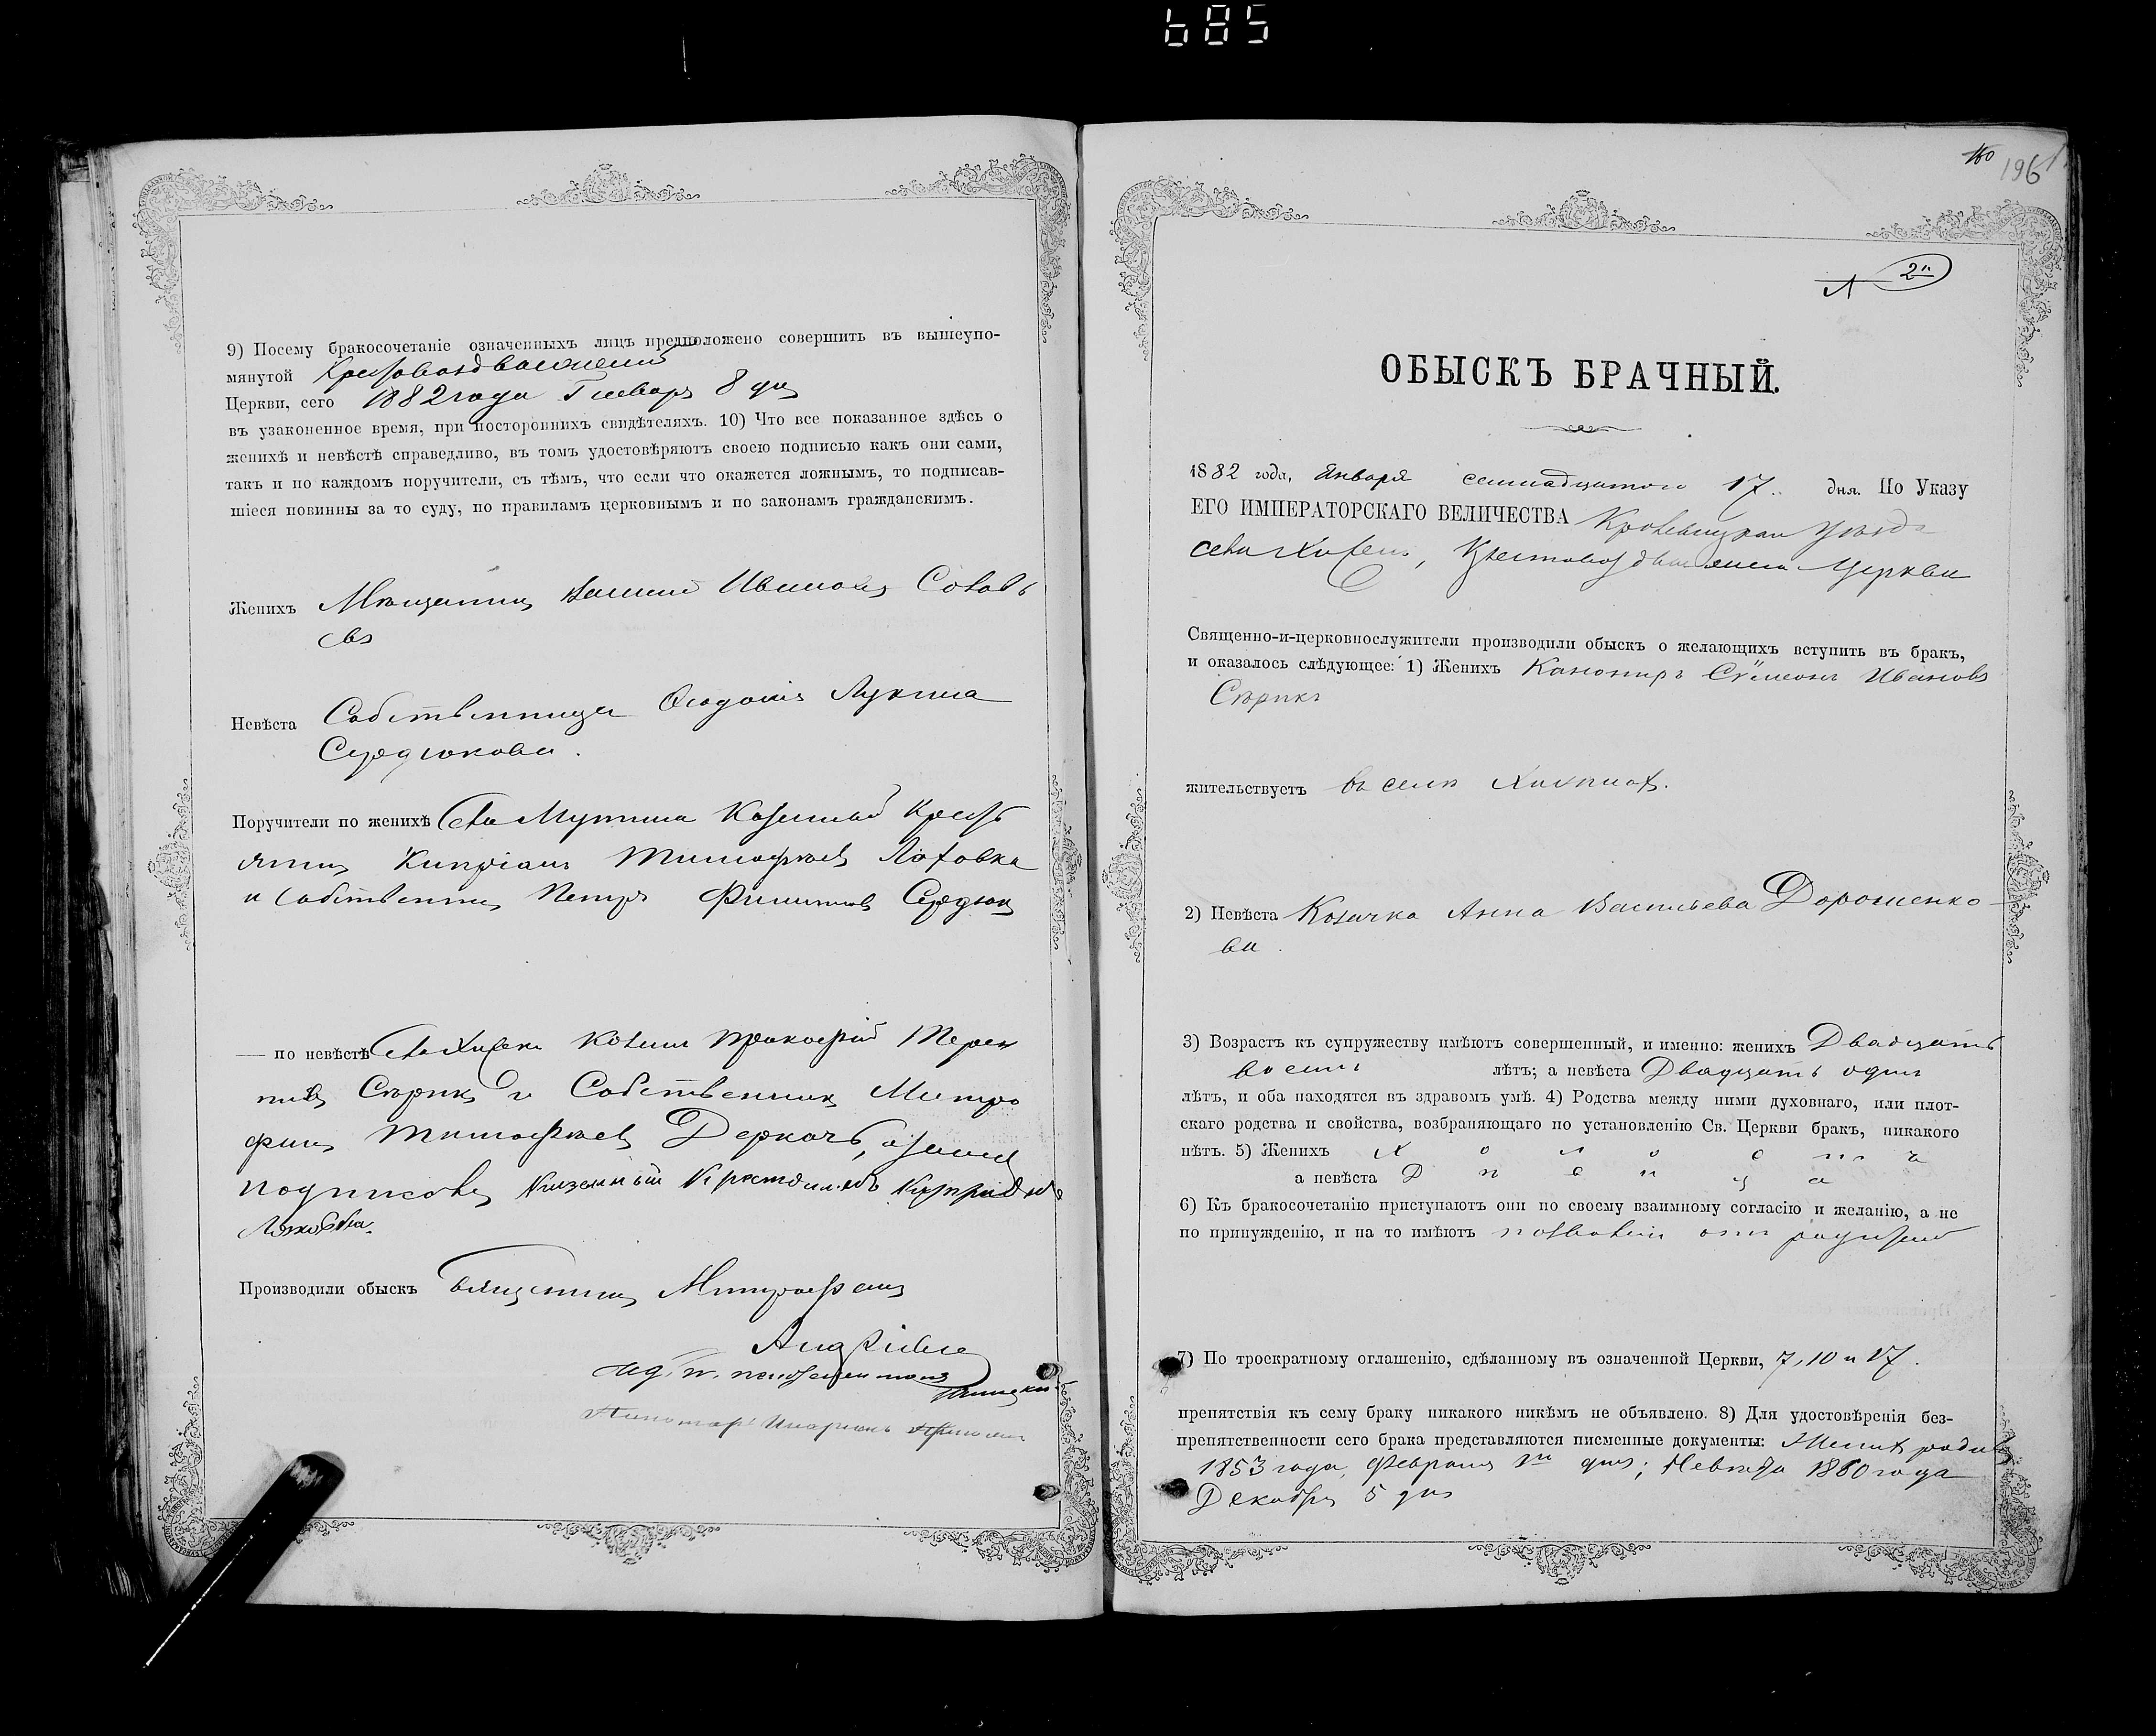 685
9) Посему бракосочетаніе означенныхъ лицъ предположено совершить въ вышеупо-
мянутой Крестовоздвиженской
Церкви, сего 1882 года Генваря 8 дня
въ узаконенное время, при постороннихъ свидѣтеляхъ. 10) Что все показанное здѣсь о
женихѣ и невѣстѣ справедливо, въ томъ удостовѣряютъ своею подписью какъ они сами,
такъ и по каждомъ поручители, съ тѣмъ, что если что окажется ложнымъ, то подписав-
шіеся повинны за то суду, по правиламъ церковнымъ и по законамъ гражданскимъ.
Женихъ Мѣщанинъ Ивановъ
Невѣста Собственница Лукина
Середюкова.
Поручители по женихѣ Села Мутина Казенный Крест
янинъ Кипріанъ Тимофѣевъ
и Собственникъ Петръ Филиповъ Середюкъ
— по невѣстѣ Козакъ Прокофій Терен
тіевъ Сѣрикъ и Собственникъ Митро
фанъ Тимофѣевъ Деркачъ,
Производили обыскъ Священникъ Митрофанъ
Пономарь
160
196
№ 2й
ОБЫСКЪ БРАЧНЫЙ.
1882 года, Января семнадцатого 17. дня. По Указу
ЕГО ИМПЕРАТОРСКАГО ВЕЛИЧЕСТВА Кролевецкаго уѣзда
села Крестовоздвиженской Церкви
Священно-и-церковнослужители производили обыскъ о желающихъ вступить въ бракъ,
и оказалось слѣдующее: 1) Женихъ Канониръ Симеонъ Ивановъ
Сѣрикъ
жительствуетъ въ селѣ
2) Невѣста Козачка Анна Васильева Дорошенко-
ва.
3) Возрастъ къ супружеству имѣютъ совершенный, и именно: женихъ Двадцать
восемь лѣтъ; а невѣста Двадцать одинъ
лѣтъ, и оба находятся въ здравомъ умѣ. 4) Родства между ними духовнаго, или плот-
скаго родства и свойства, возбраняющаго по установленію Св. Церкви бракъ, никакого
нѣтъ. 5) Женихъ Х о л о с т ъ
а невѣста Д ѣ в и ц а
6) Къ бракосочетанію приступаютъ они по своему взаимному согласію и желанію, а не
по принужденію, и на то имѣютъ позволеніе отъ родителей
7) По троекратному оглашенію, сдѣланному въ означенной Церкви, 7, 10 и 17.
препятствія къ сему браку никакого никѣмъ не объявлено. 8) Для удостовѣренія без-
препятственности сего брака представляются писменные документы: Женихъ родился
1853 года, Февраля дня; Невѣста 1860 года
Декабря 5 дня